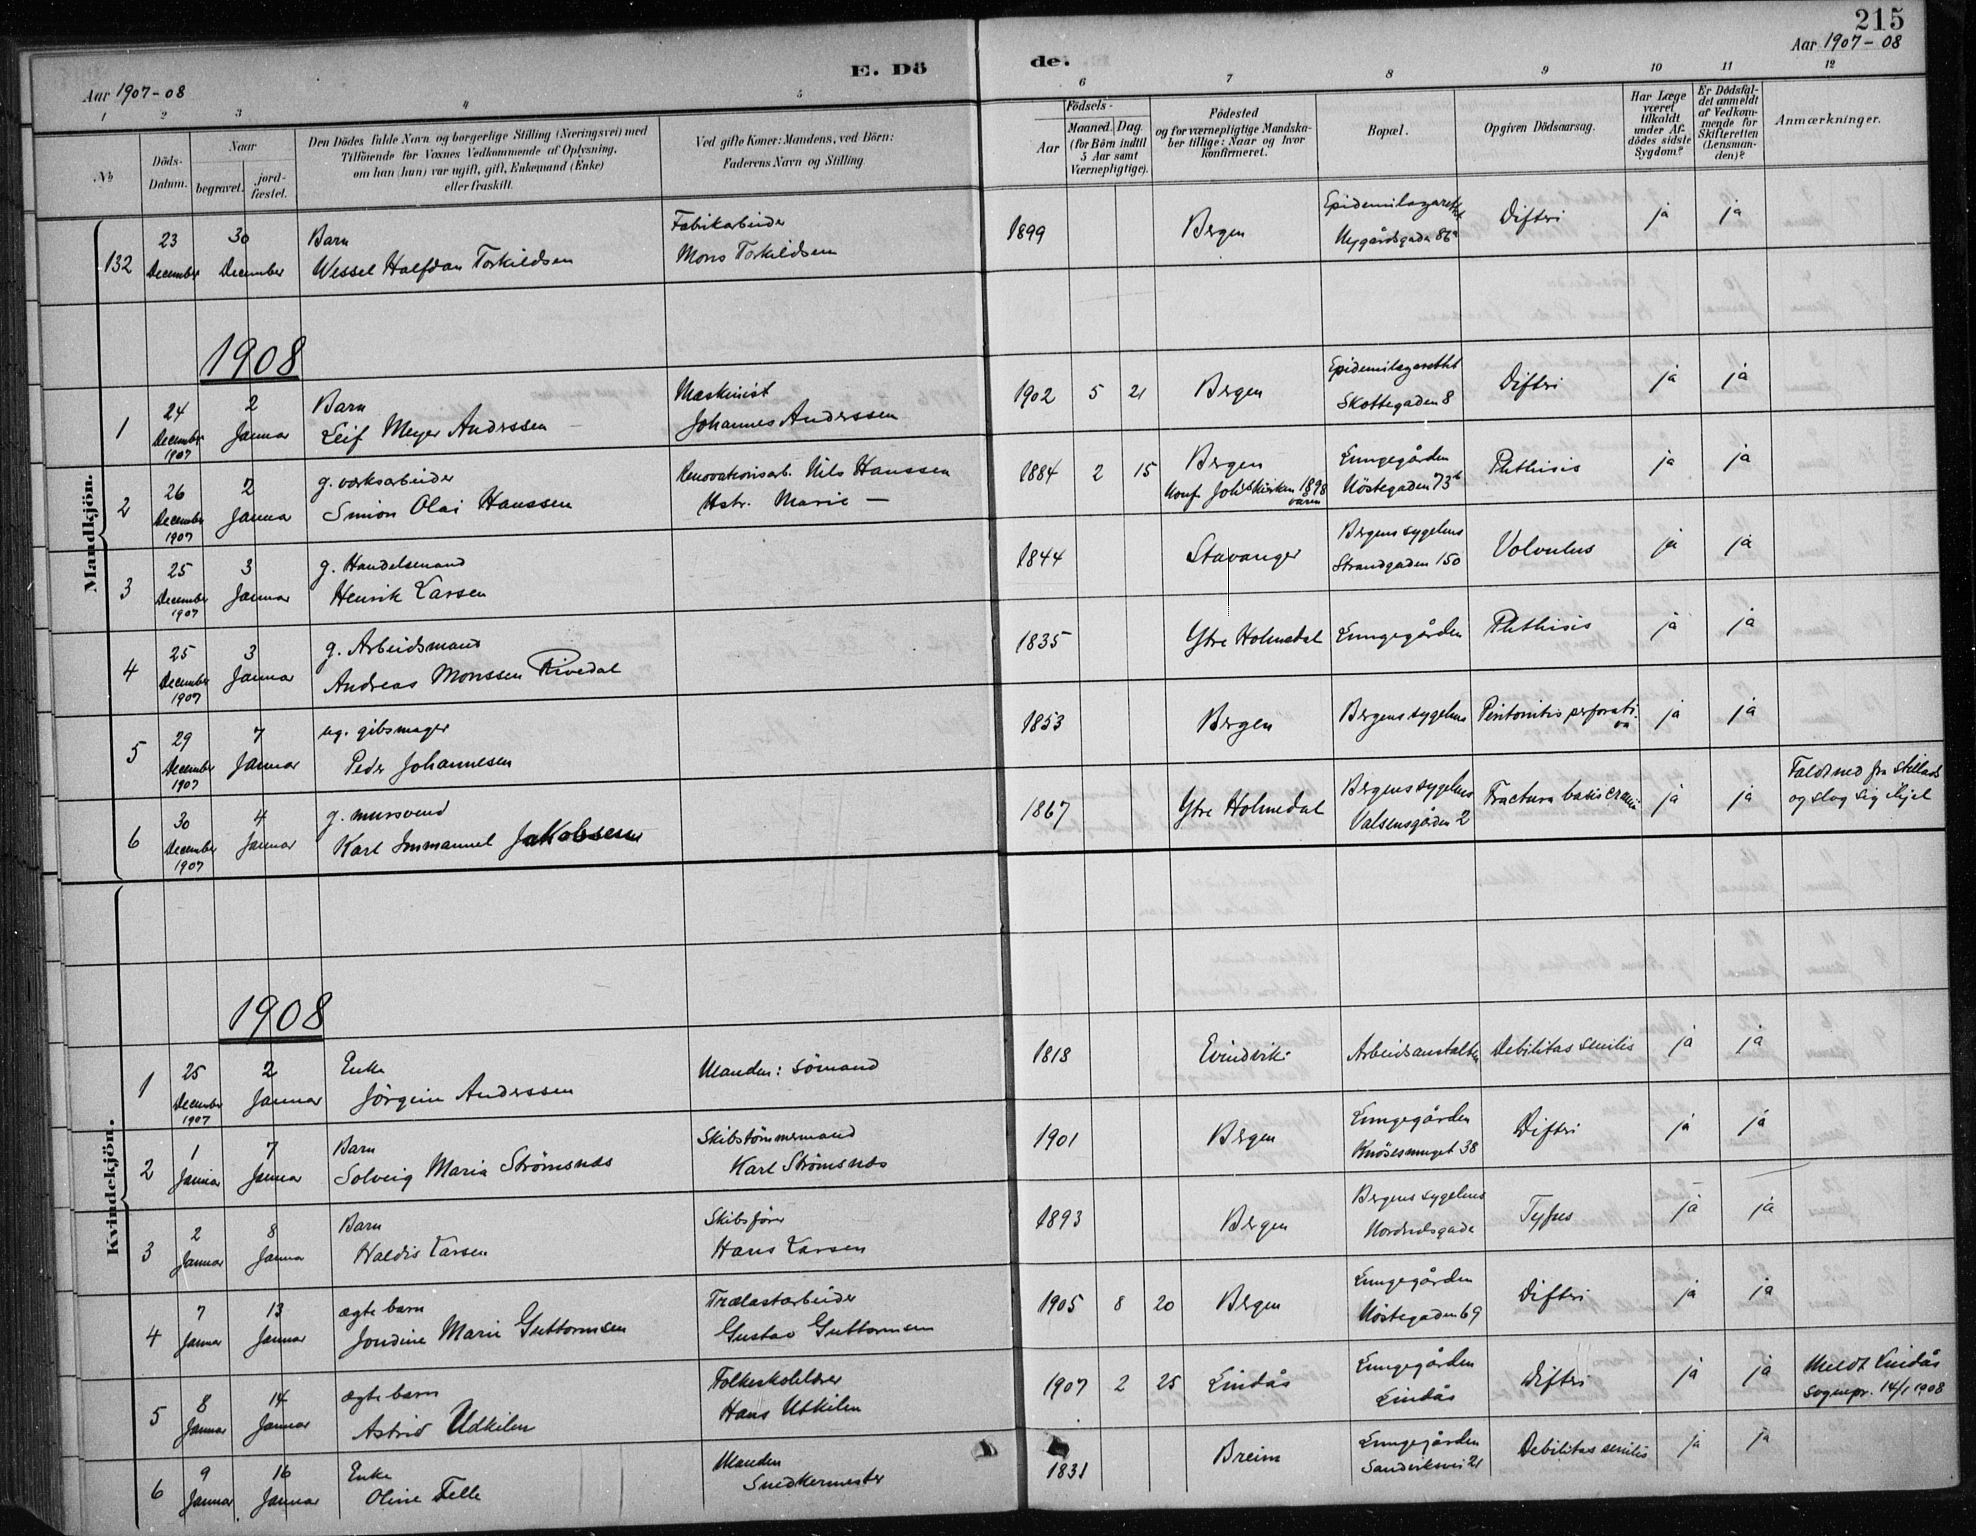 215
Aar 1907-08
E. Dö
de.
Aar 1907-08
1 2 3 4 5 6 7 8 9 10 11 12
No
Döds-Datum.
Naar
begravet.
jord-fæstet.
Den Dödes fulde Navn og borgerlige Stilling (Næringsvei) med
Tilföiende for Voxnes Vedkommende af Oplysning,
om han (hun) var ugift, gift, Enkemand (Enke)
eller fraskilt.
Ved gifte Koner: Mandens, ved Börn:
Faderens Navn og Stilling.
Födsels-
Aar
Maaned. Dag.
(for Börn indtil
5 Aar samt
Værnepligtige).
Födested
og for værnepligtige Mandska-
ber tillige: Naar og hvor
konfirmeret.
Bopæl.
Opgiven Dödsaarsag.
Har Læge
været
tilkaldt
under Af-
dödes sidste
Sygdom?
Er Dödsfal-
det anmeldt
af Vedkom-
mende for
Skifteretten
(Lensman-
den)?
Anmærkninger.
Mandkjön.
132 23 December 30 December Barn
Wessel Halfdan Torkildsen
Fabrikarbeider
Mons Torkildsen
1899 Bergen Epidemilazarettet
Nygårdsgaden 86a
Difteri ja ja
1908
1 24 December 1907 2 Januar Barn
Leif Meyer Anderssen
Maskinist
Johannes Anderssen
1902 5 21 Bergen Epidemilazarettet
Skottegaden 8
Difteri ja ja
2 26 December 1907 2 Januar g. verksarbeider
Simon Olai Hanssen
Renovationsarb. Nils Hanssen
Hstr. Marie —
1884 2 15 Bergen
Konf. Johskirken 1898
våren
Lungegården
Nöstegaden 73b
Phthisis ja ja
3 25 December 1907 3 Januar g. Handelsmand
Henrik Larsen
1844 Stavanger Bergens sygehus
Strandgaden 150
Volvulus ja ja
4 25 December 1907 3 Januar g. Arbeidsmand
Andreas Monssen Rivedal
1835 Ytre Holmedal Lungegården Phthisis ja ja
5 29 December 1907 7 Januar ug. gibsmager
Peder Johannesen
1853 Bergen Bergens sygehus Peritonitis perforativa ja ja
6 30 December 1907 4 Januar g. mursvend
Karl Immanuel Jakobsen
1867 Ytre Holmedal Bergens sygehus
Valsensgården 2
Fractura basis cranii ja ja Faldt ned fra stillads
og slog sig ihjel
Kvindekjön.
1908
1 25 December 1907 2 Januar Enke
Jörgine Anderssen
Manden: sömand
1818 Evindvik Arbeidsanstalten Debilitas senilis ja ja
2 1 Januar 7 Januar Barn
Solveig Maria Strömsnes
Skibstömmermand
Karl Strömsnes
1901 Bergen Lungegården
Knösesmuget 38
Difteri ja ja
3 2 Januar 8 Januar Barn
Haldis Larsen
Skibsförer
Hans Larsen
1893 Bergen Bergens sygehus
Nordnesgade
Tyfus ja ja
4 7 Januar 13 Januar ægte barn
Jondine Marie Guttormsen
Trælastarbeider
Gustav Guttormsen
1905 8 20 Bergen Lungegården
Nöstegaden 69
Difteri ja ja
5 8 Januar 14 Januar ægte barn
Astrid Udkilen
Folkeskolelærer
Hans Utkilen
1907 2 25 Lindås Lungegården
Lindås
Difteri ja ja Meldt Lindås
Sognepr. 14/1 1908
6 9 Januar 16 Januar Enke
Oline Felle
Manden
Snedkermester
1831 Breim Lungegården
Sandviksvei 21
Debilitas senilis ja ja